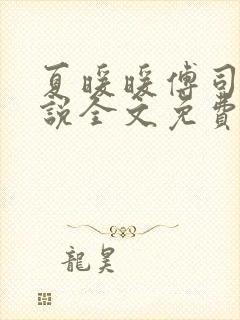 夏暖暖傅司
說全文免費
龍昊